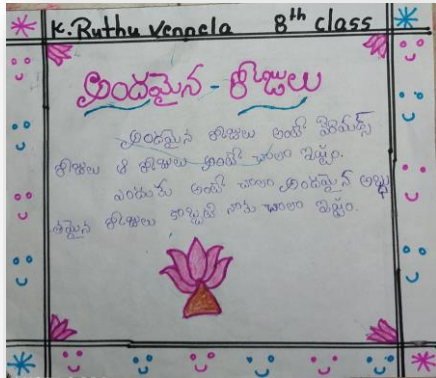 K. Ruthu Vennela 8th class
అందమైన - రోజులు
అందమైన రోజులు అంటే
రోజులు ఆ రోజులు అంటే చాలా ఇష్టం.
ఎందుకు అంటే చాలా అందమైన అద్భు
తమైన రోజులు కాబట్టి నాకు చాలా ఇష్టం.